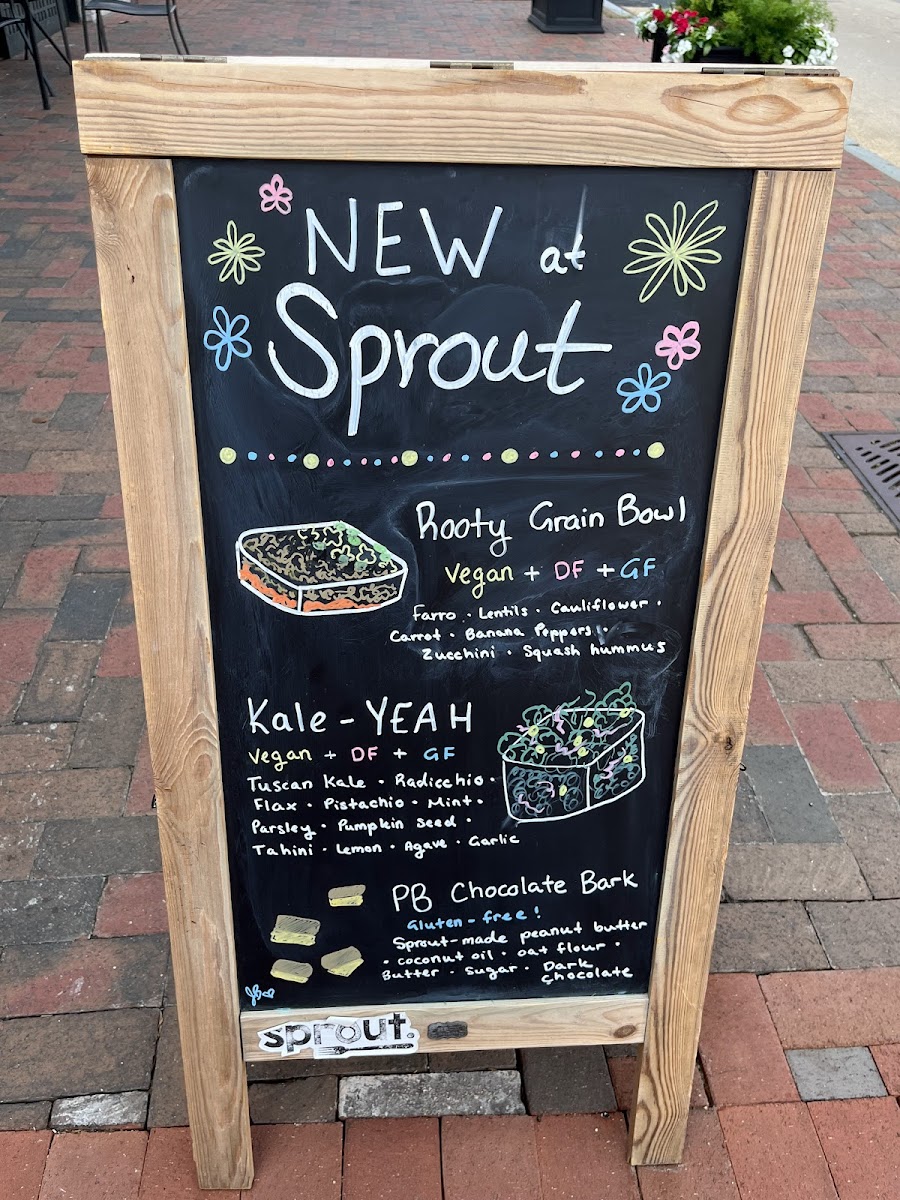 NEW at
Sprout
Rooty Grain Bowl
Vegan + DF + GF
Farro · Lentils · Cauliflower ·
Carrot · Banana Peppers ·
Zucchini · Squash hummus
Kale - YEAH
Vegan + DF + GF
Tuscan Kale · Radicchio ·
Flax · Pistachio · Mint ·
Parsley · Pumpkin Seed ·
Tahini · Lemon · Agave · Garlic
PB Chocolate Bark
Gluten-free!
Sprout-made peanut butter
· coconut oil · oat flour ·
Butter · sugar · Dark
Chocolate
sprout.